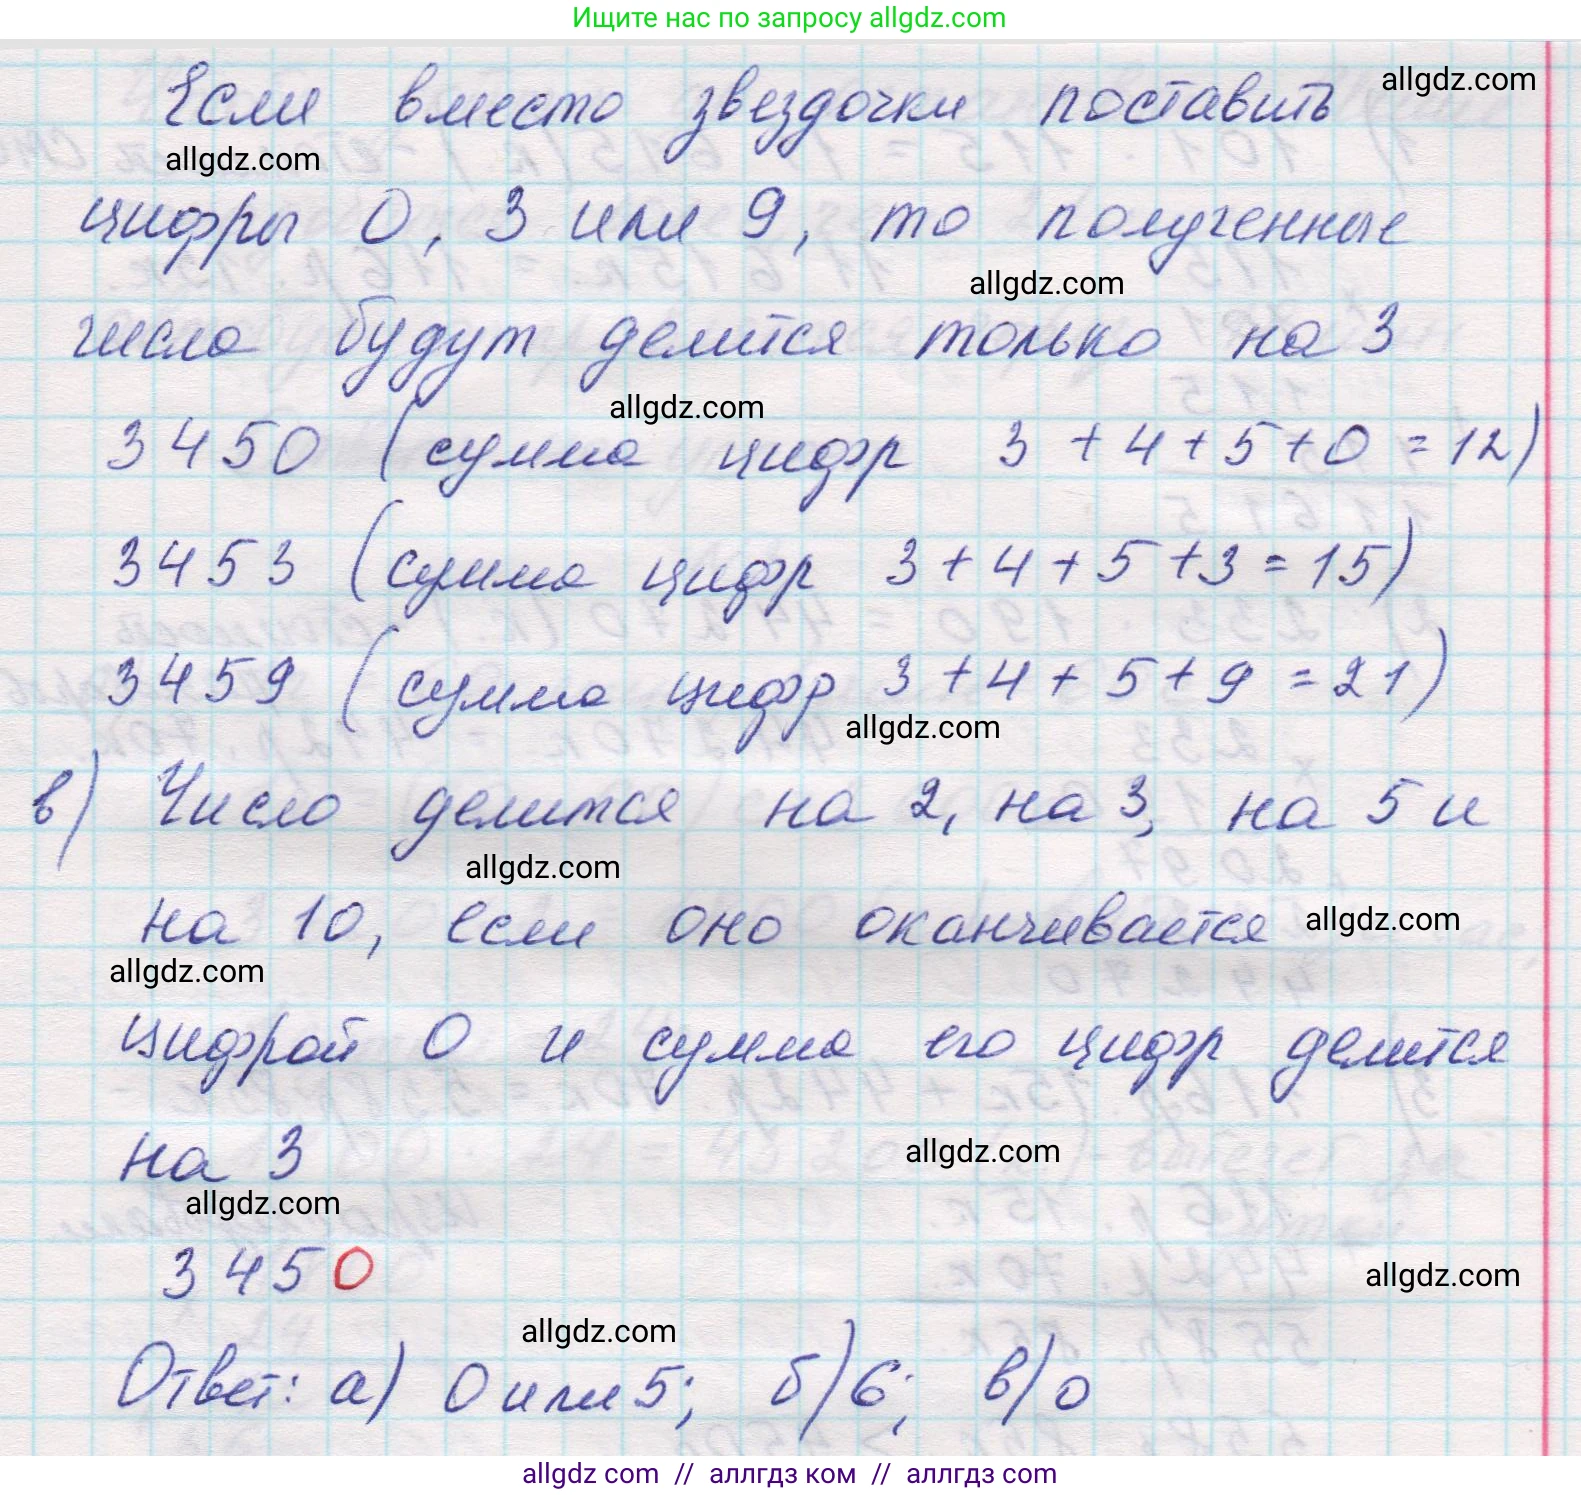 Ищите нас по запросу allgdz.com
allgdz.com
Если вместо звездочки поставить
allgdz.com
цифры 0, 3 или 9, то полученные
allgdz.com
числа будут делится только на 3
allgdz.com
3450 (сумма цифр 3+4+5+0=12)
3453 (сумма цифр 3+4+5+3=15)
3459 (сумма цифр 3+4+5+9=21)
allgdz.com
в) Число делится на 2, на 3, на 5 и
allgdz.com
на 10, если оно оканчивается
allgdz.com
allgdz.com
цифрой 0 и сумма его цифр делится
на 3
allgdz.com
allgdz.com
3450
allgdz.com
allgdz.com
Ответ: а) 0 или 5; б) 6; в) 0
allgdz com // аллгдз ком // аллгдз com